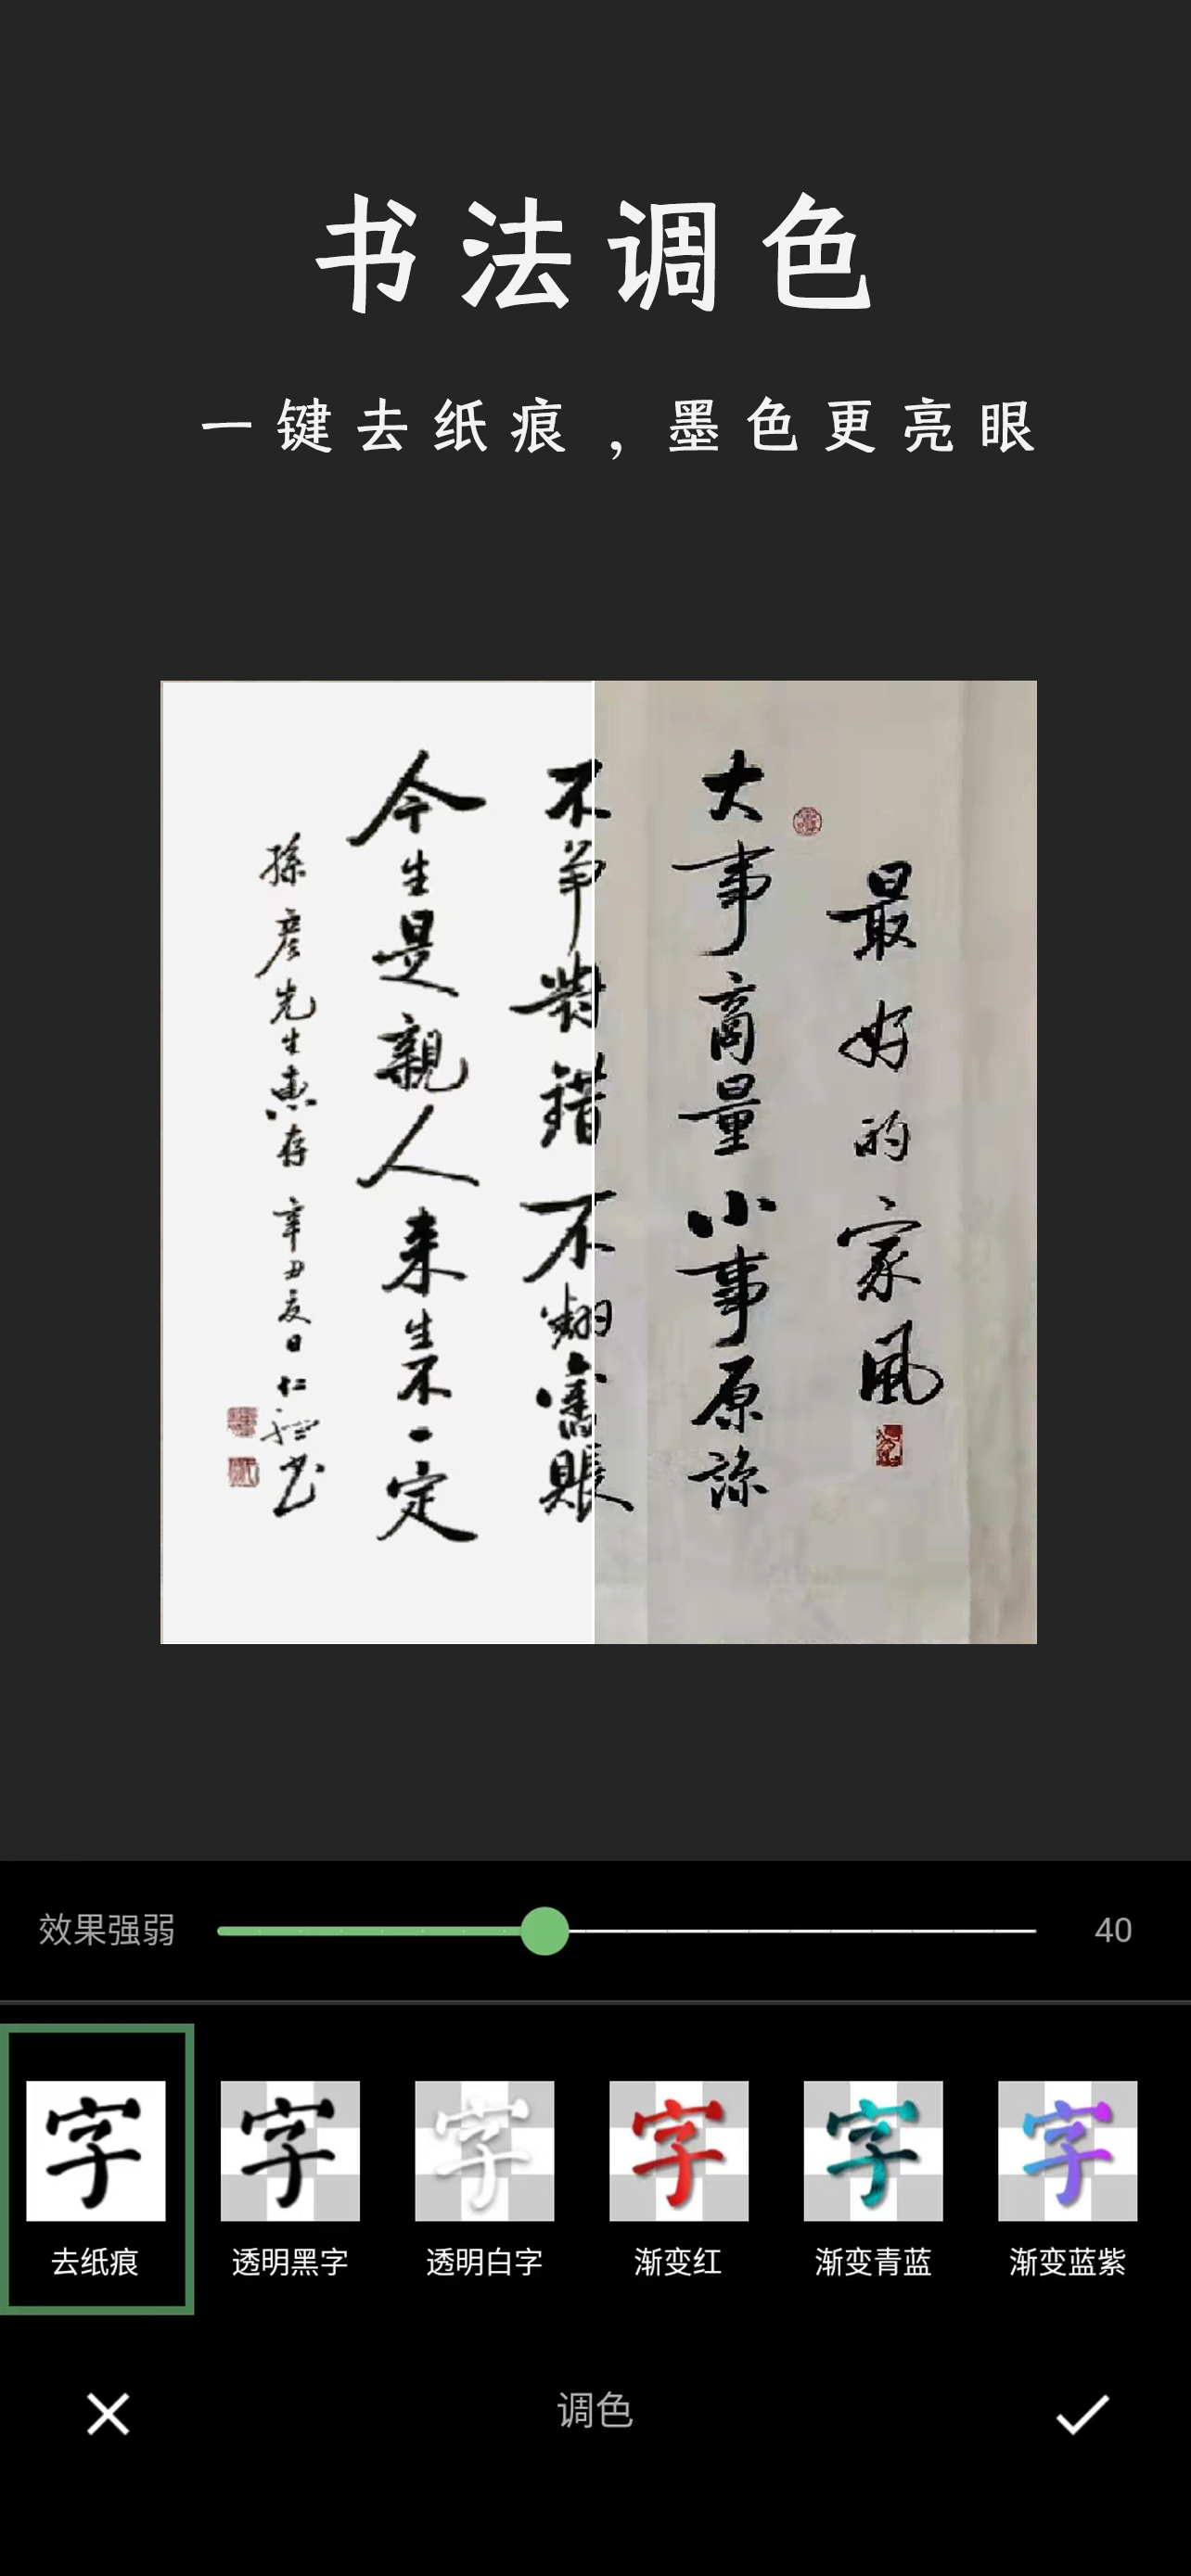 书法调色
一键去纸痕，墨色更亮眼
最好的家风
大事商量小事原谅
不争對錯不翻舊賬
今生是親人来生不一定
孫彦先生惠存 辛丑夏日 仁 书
效果强弱 40
去纸痕 透明黑字 透明白字 渐变红 渐变青蓝 渐变蓝紫
字 字 字 字 字 字
调色